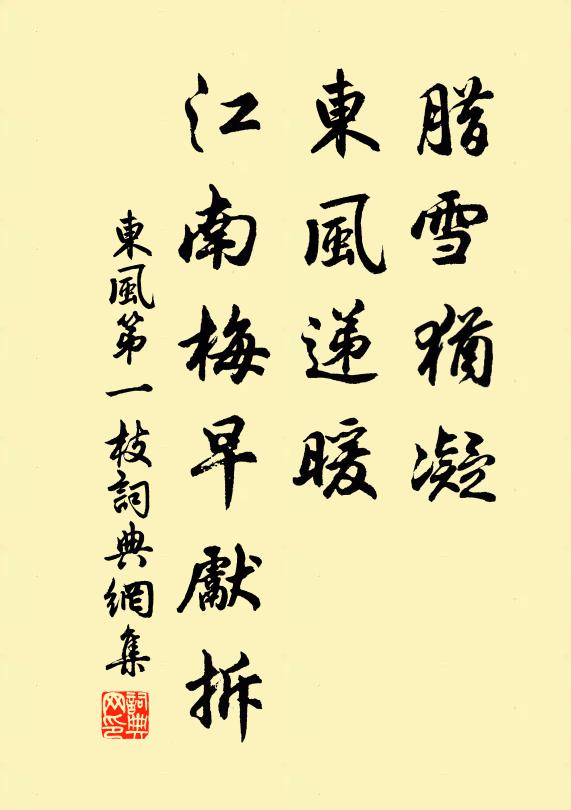 腊雪猶凝
東風递暖
江南梅早獻拆
東風第一枝詞典網集
詞典网印